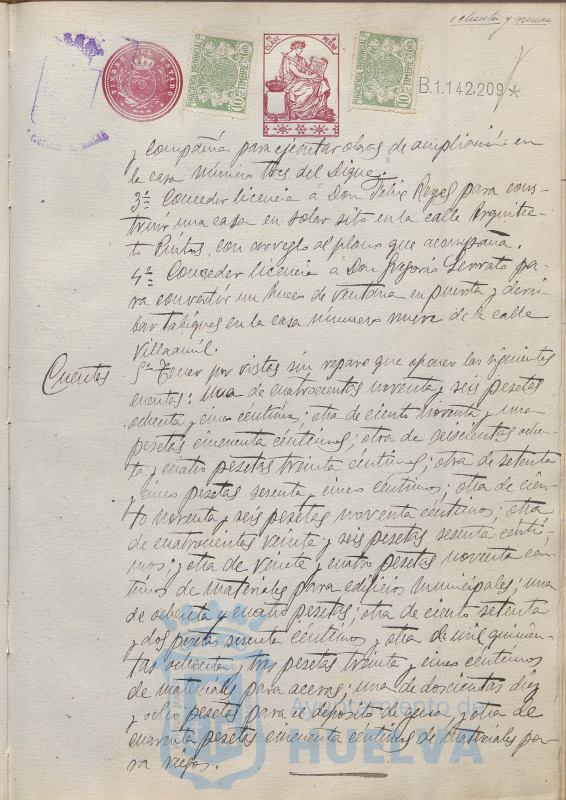 ochenta y nueve
TIMBRE DEL ESTADO
PROVINCIAL
10 CTS
TIMBRE
CLASE
PROVINCIAL
10 CTS
TIMBRE
B.1.142.209 *
y Compañía para ejecutar obras de ampliación en
la casa número tres del Dique.
3º Conceder licencia á Don Felix Reyes para cons-
truir una casa en solar sito en la calle Arquitec-
to Pintos, con arreglo al plano que acompaña.
4º Conceder licencia á Don Gregorio Serrato pa-
ra convertir un hueco de ventana en puerta y derri-
bar tabiques en la casa número nueve de la calle
Villaamil.
Cuentas
5º Tener por vistas sin reparo que oponer las siguientes
cuentas: una de cuatrocientas noventa y seis pesetas
ochenta y cinco céntimos; otra de ciento noventa y una
pesetas cincuenta céntimos; otra de seiscientas ochen-
ta y cuatro pesetas treinta céntimos; otra de setenta
y cinco pesetas sesenta y cinco céntimos; otra de cien-
to noventa y seis pesetas noventa céntimos; otra
de cuatrocientas veinte y seis pesetas sesenta cénti-
mos; y otra de veinte y cuatro pesetas noventa cén-
timos de materiales para edificios municipales; una
de ochenta y cuatro pesetas; otra de ciento setenta
y dos pesetas sesenta céntimos y otra de mil quinien-
tas ochenta y tres pesetas treinta y cinco céntimos
de materiales para aceras; una de doscientas diez
y ocho pesetas para el depósito de agua y otra de
cuarenta pesetas cincuenta céntimos de materiales pa-
ra riegos.
Ayuntamiento de
HUELVA